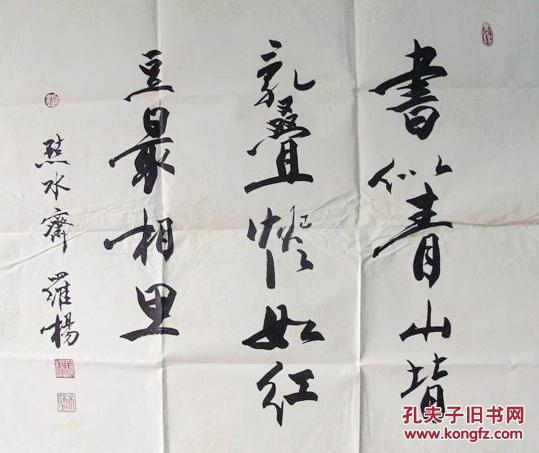 書似青山
乱叠燈如红
豆最相思
點水齋 羅楊
孔夫子旧书网
www.kongfz.com